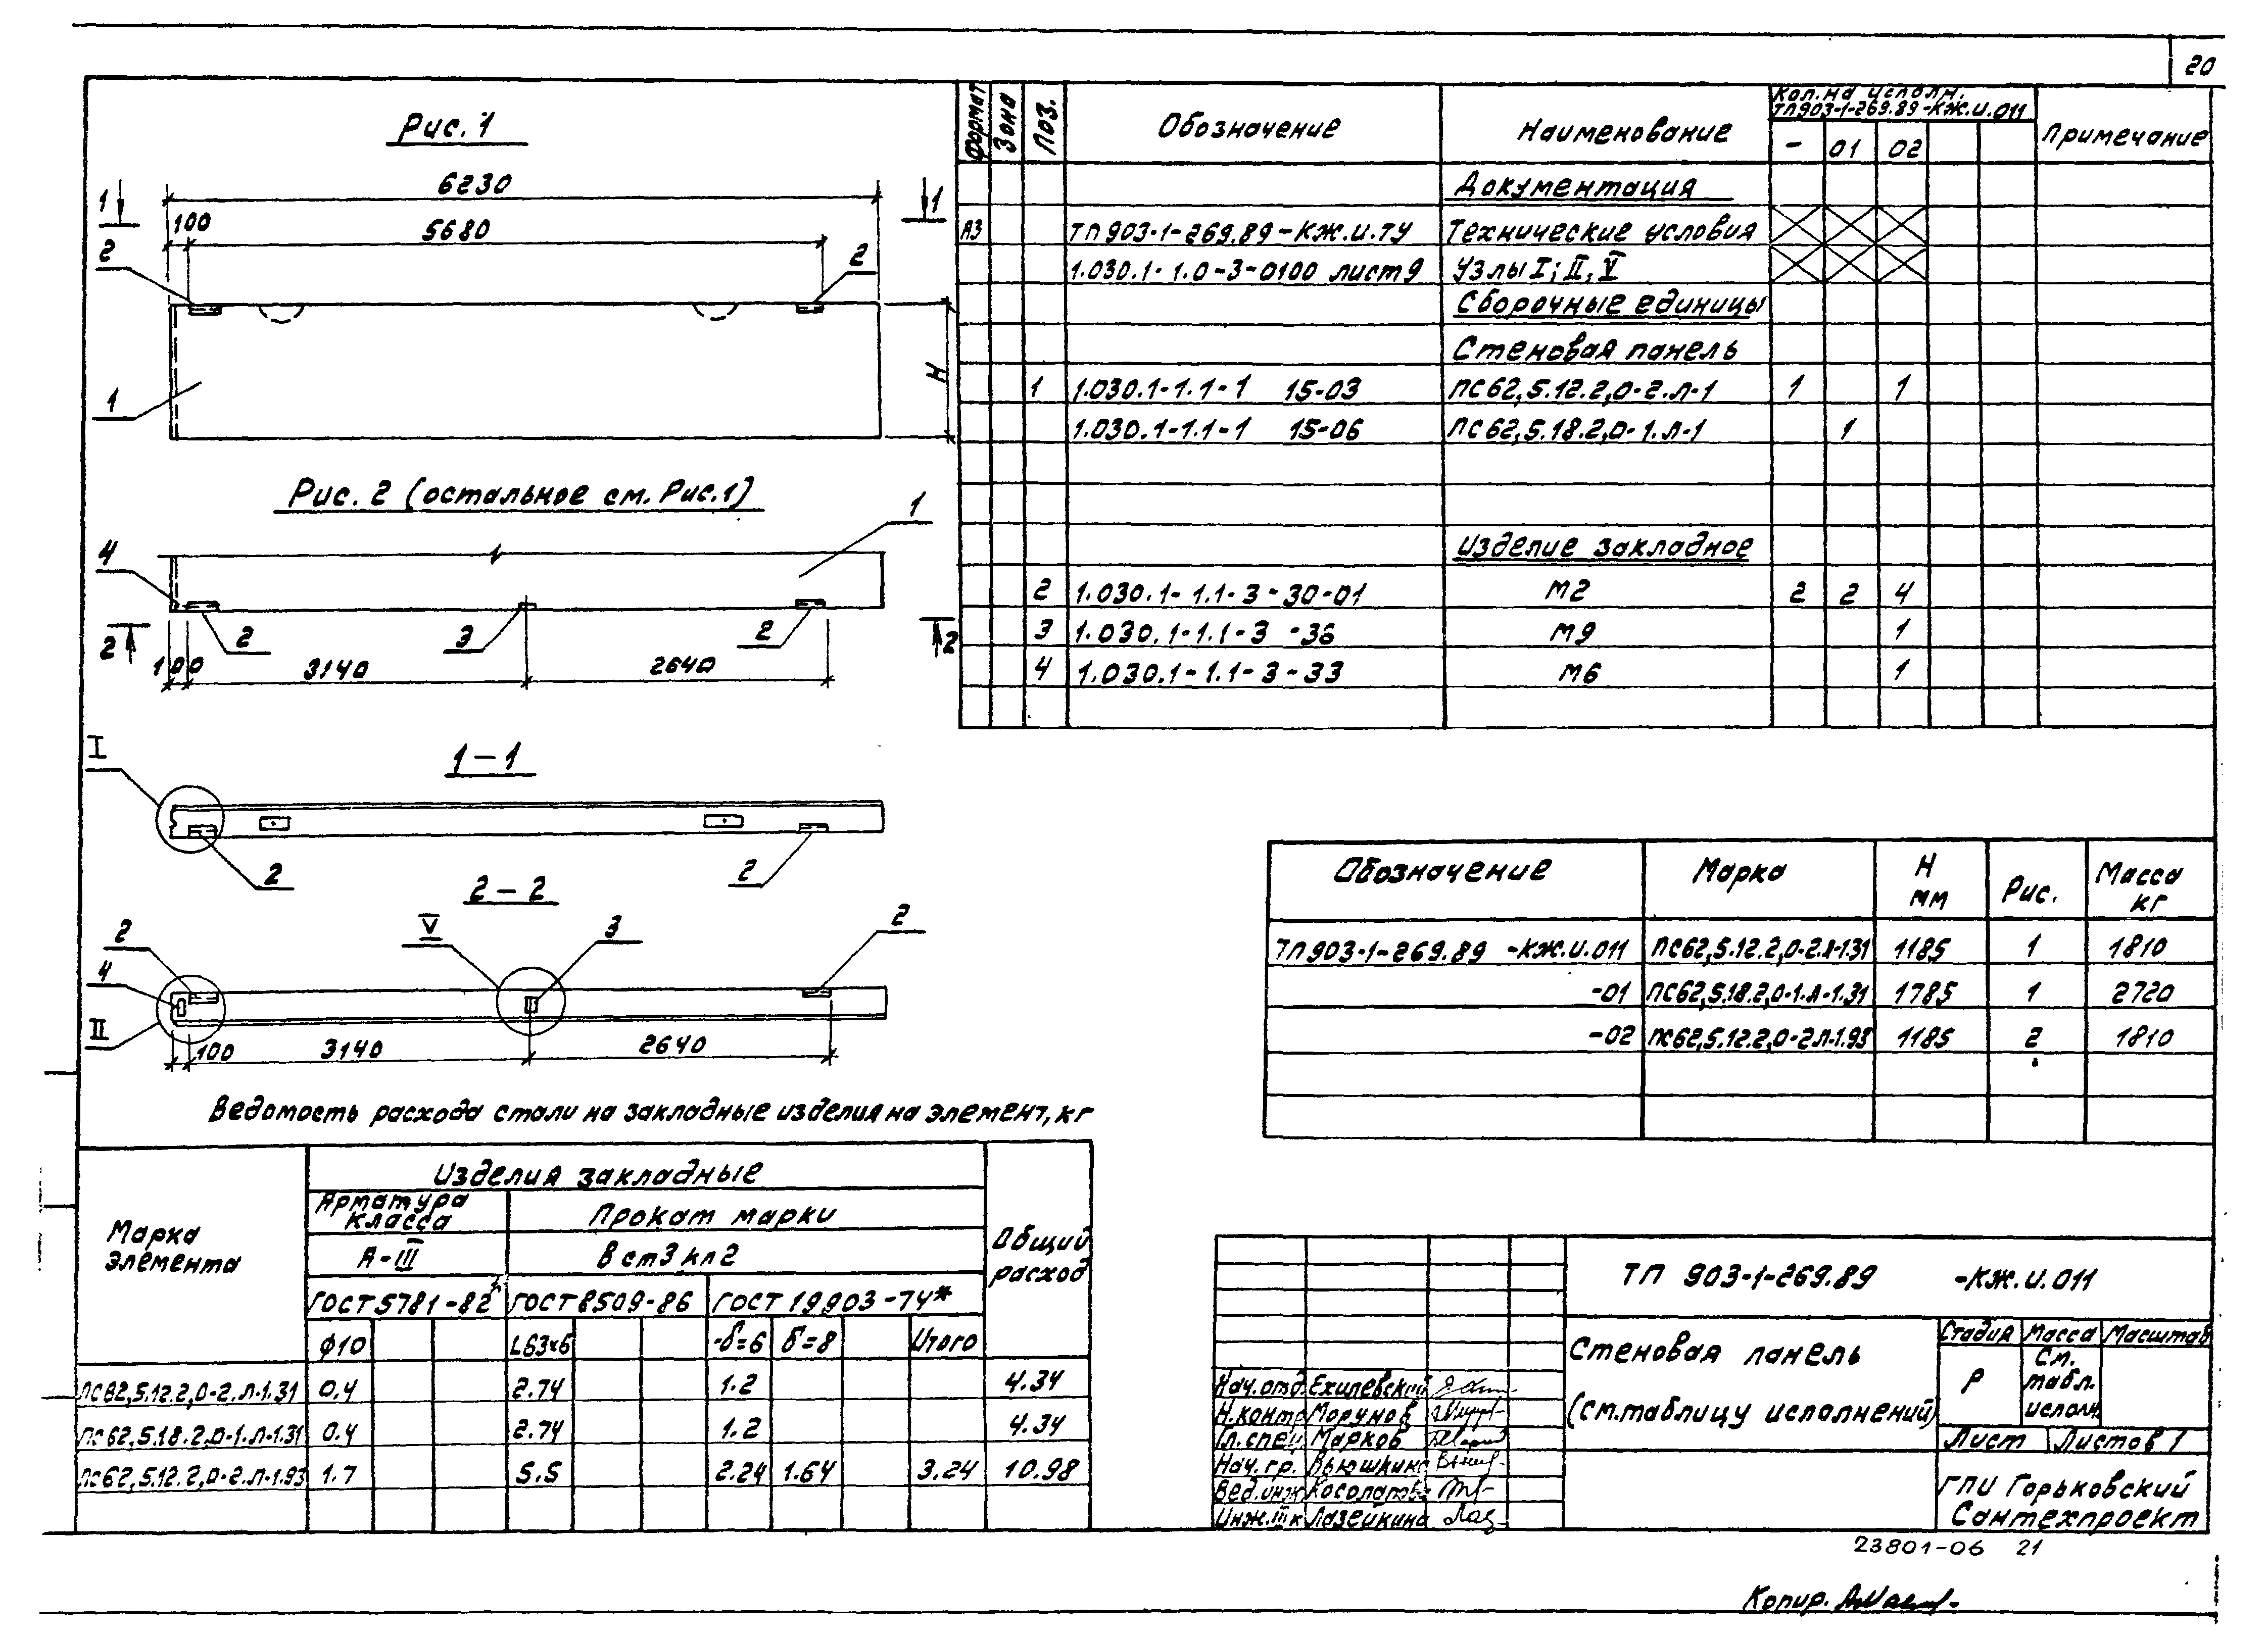 20
Рис. 1
6230
1 1
100 5680
2 2
H
1
Рис. 2 (остальное см. Рис.1)
1
4
2 2 3 2 2
100 3140 2640
I
1-1
2 2
2-2
2 V 3 2
4
II
100 3140 2640
Формат Зона Поз. Обозначение Наименование Кол. на исполн. ТП903-1-269.89-КЖ.И.011 Примечание
- 01 02
Документация
А3 ТП903-1-269.89-КЖ.И.ТУ Технические условия
1.030.1-1.0-3-0100 лист 9 Узлы I; II, V
Сборочные единицы
Стеновая панель
1 1.030.1-1.1-1 15-03 ПС62,5.12.2,0-2.Л-1 1 1
1.030.1-1.1-1 15-06 ПС62,5.18.2,0-1.Л-1 1
Изделие закладное
2 1.030.1-1.1-3-30-01 М2 2 2 4
3 1.030.1-1.1-3-36 М9 1
4 1.030.1-1.1-3-33 М6 1
Обозначение Марка H мм Рис. Масса кг
ТП903-1-269.89 -КЖ.И.011 ПС62,5.12.2,0-2.Л-1.31 1185 1 1810
-01 ПС62,5.18.2,0-1.Л-1.31 1785 1 2720
-02 ПС62,5.12.2,0-2Л-1.93 1185 2 1810
Ведомость расхода стали на закладные изделия на элемент, кг
Марка элемента Изделия закладные Общий расход
Арматура класса Прокат марки
А-III Вст3кп2
ГОСТ 5781-82 ГОСТ 8509-86 ГОСТ 19903-74*
ф10 L63х6 -δ=6 δ=8 Итого
ПС82,5.12.2,0-2.Л-1.31 0.4 2.74 1.2 4.34
ПС62,5.18.2,0-1.Л-1.31 0.4 2.74 1.2 4.34
ПС62,5.12.2,0-2.Л-1.93 1.7 5.5 2.24 1.64 3.24 10.98
ТП 903-1-269.89 -КЖ.И.011
Стеновая панель
(см.таблицу исполнений)
Стадия Масса Масштаб
Р См. табл. исполн.
Лист Листов 1
ГПИ Горьковский
Сантехпроект
Нач.отд. Ехилевский
Н.контр Морунов
Гл.спец Марков
Нач.гр. Вьюшкина
Вед.инж Косолапов
Инж.III к Лазейкина
23801-06 21
Копир.